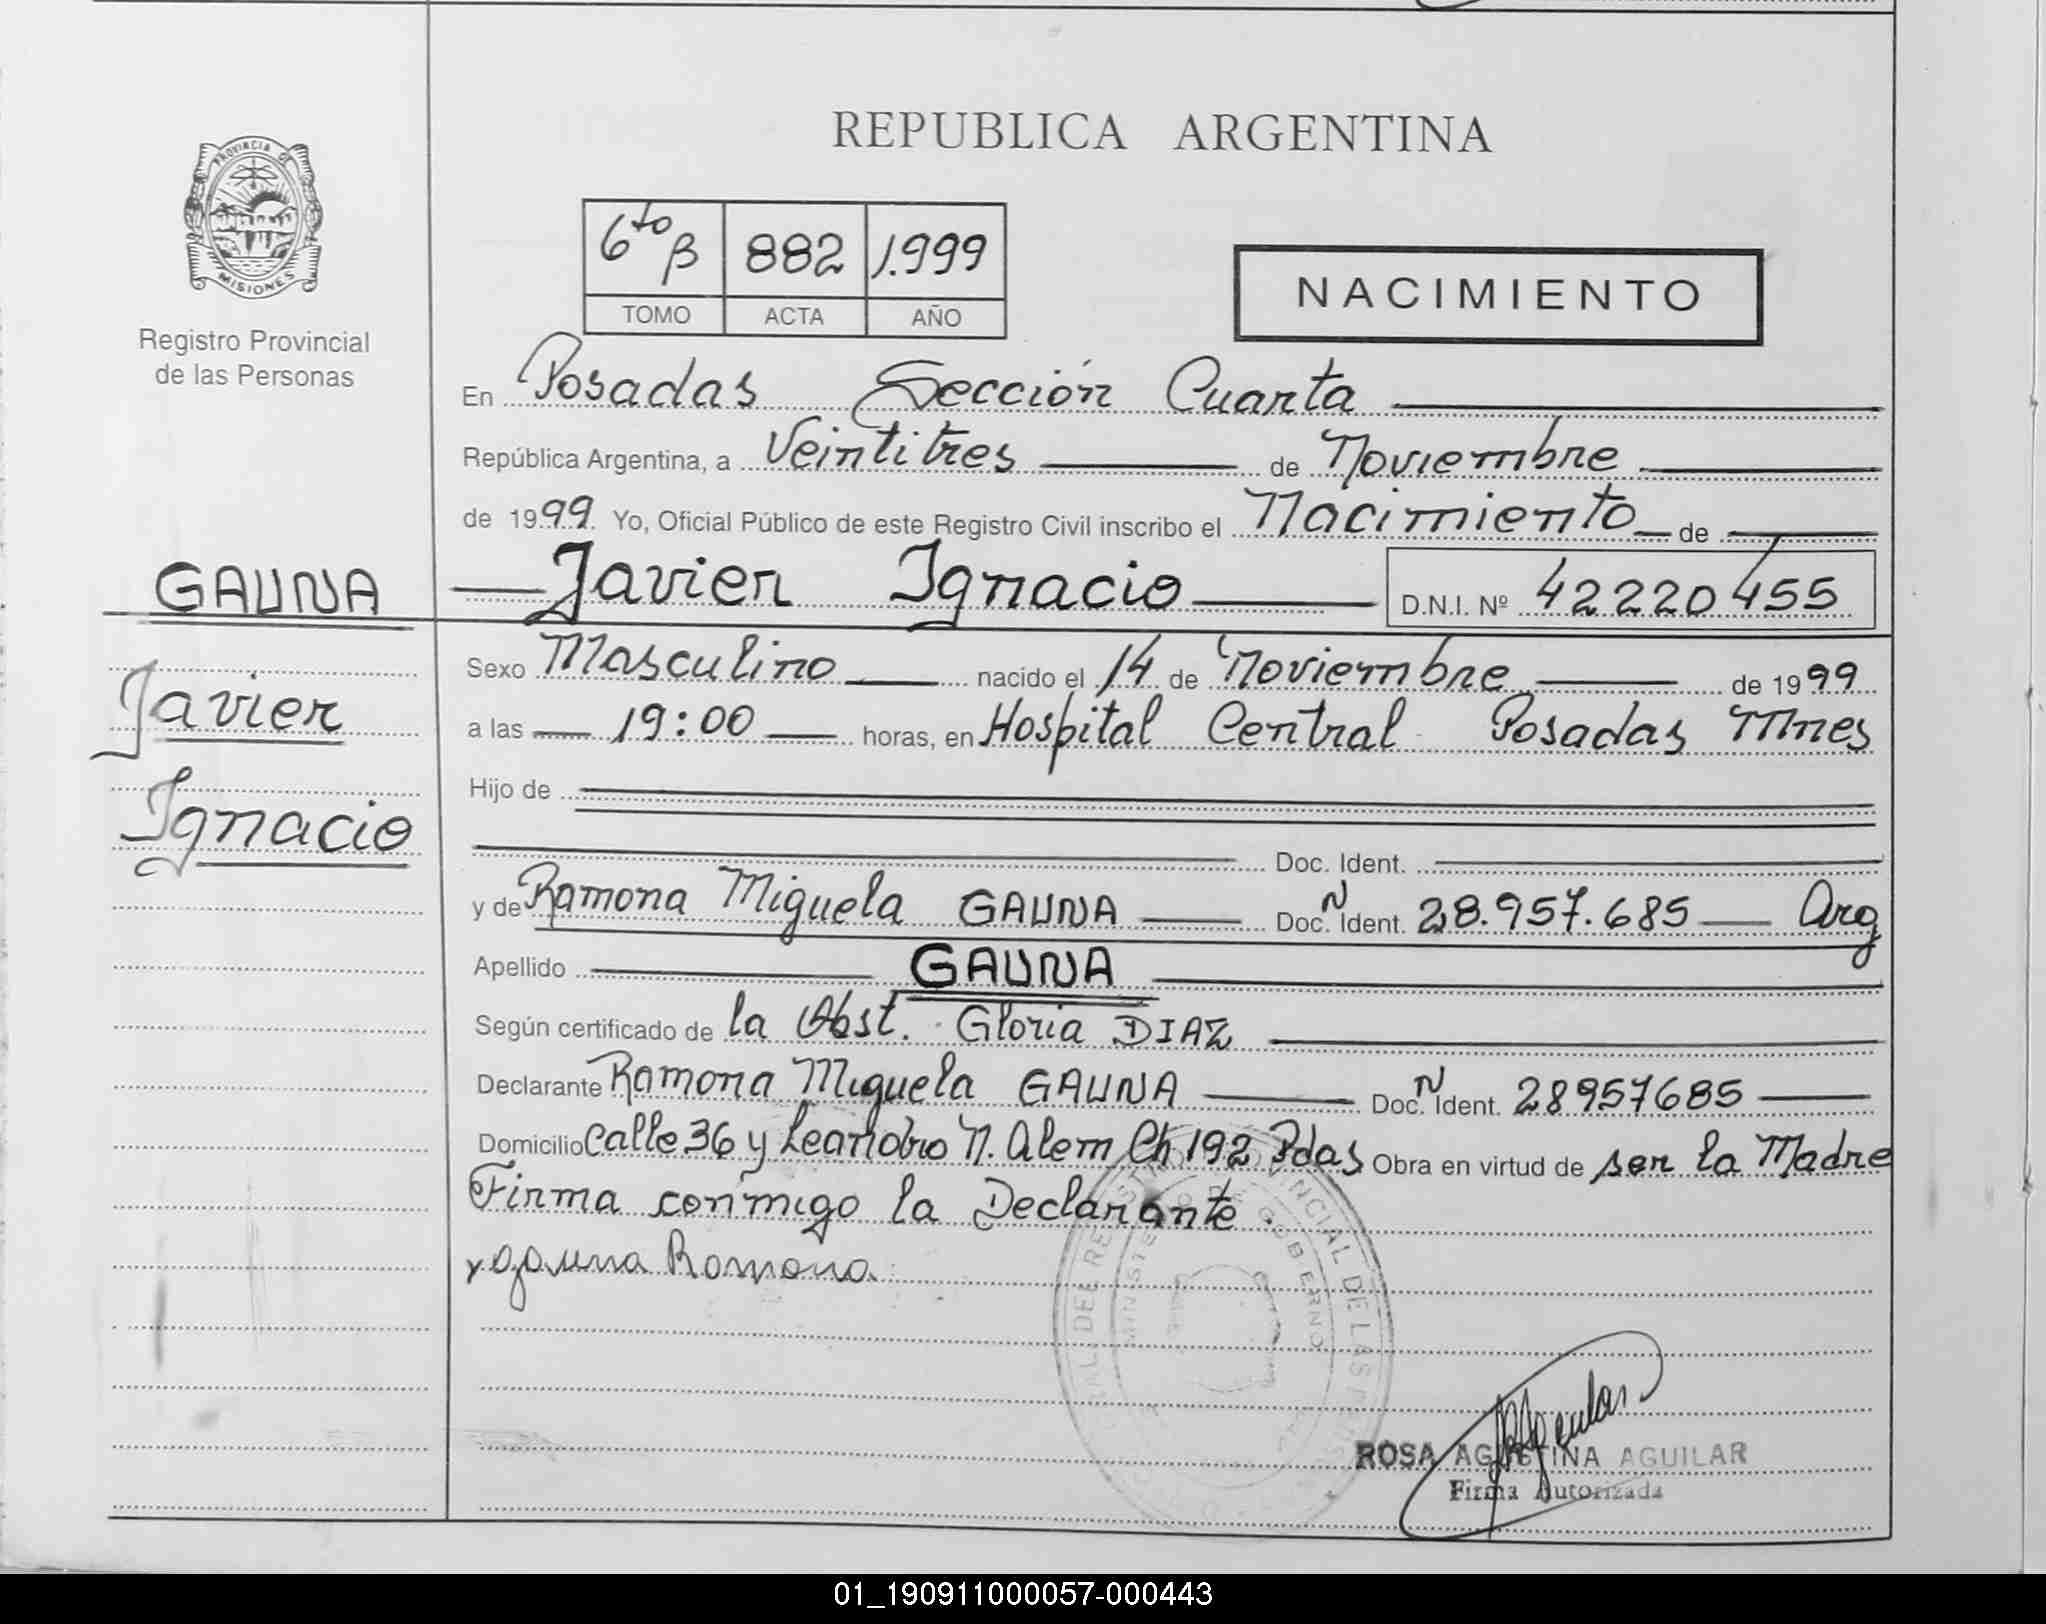 REPUBLICA ARGENTINA
PROVINCIA DE
MISIONES
Registro Provincial
de las Personas
6to B 882 1.999
TOMO ACTA AÑO
NACIMIENTO
En Posadas Sección Cuarta
República Argentina, a Veintitres de Noviembre
de 1999. Yo, Oficial Público de este Registro Civil inscribo el Nacimiento de
GAUNA
Javier Ignacio D.N.I. Nº 42220455
Sexo Masculino nacido el 14 de Noviembre de 1999
Javier
a las 19:00 horas, en Hospital Central Posadas Mnes
Hijo de
Ignacio
Doc. Ident.
y de Ramona Miguela GAUNA Doc. N Ident. 28.957.685 Arg
Apellido GAUNA
Según certificado de la Obst. Gloria DIAZ
Declarante Ramona Miguela GAUNA Doc. N Ident. 28957685
Domicilio Calle 36 y Leandro N. Alem Ch 192 Pdas Obra en virtud de ser la Madre
Firma conmigo la Declarante.
x gauna Ramona
MINISTERIO DE GOBIERNO
ROSA AGUSTINA AGUILAR
Firma Autorizada
01_190911000057-000443